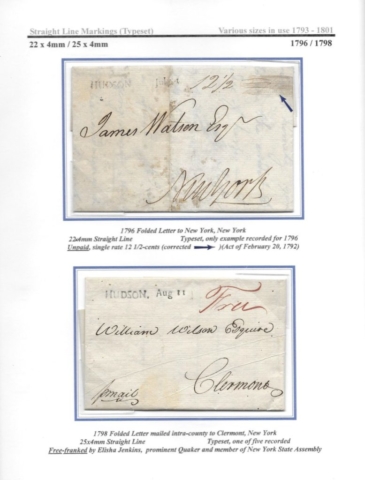 Straight Line Markings (Typeset) Various sizes in use 1793 - 1801
22 x 4mm / 25 x 4mm 1796 / 1798
HUDSON 12½
James Watson Esqr
NewYork
1796 Folded Letter to New York, New York
22x4mm Straight Line Typeset, only example recorded for 1796
Unpaid, single rate 12 1/2-cents (corrected )(Act of February 20, 1792)
HUDSON, Aug 11 Free
William Wilson Esquire
Clermont
pmail
1798 Folded Letter mailed intra-county to Clermont, New York
25x4mm Straight Line Typeset, one of five recorded
Free-franked by Elisha Jenkins, prominent Quaker and member of New York State Assembly